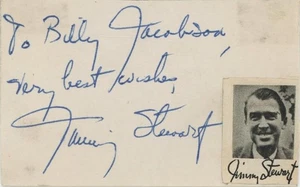 To Billy Jacobson,
Very best wishes,
Jimmy Stewart
Jimmy Stewart